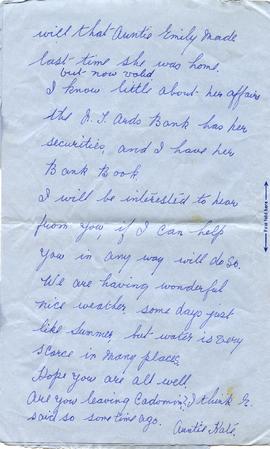 will that Auntie Emily made
last time she was home.
but now void
I know little about her affairs
the N. I. Ards Bank has her
securities, and I have her
Bank Book
I will be interested to hear
from you, if I can help
you in any way will do so.
We are having wonderful
nice weather some days just
like Summer, but water is very
scarce in many places.
Hope you are all well,
Are you leaving Cadomin? I think
said so sometime ago.
Auntie Kate.
First fold here